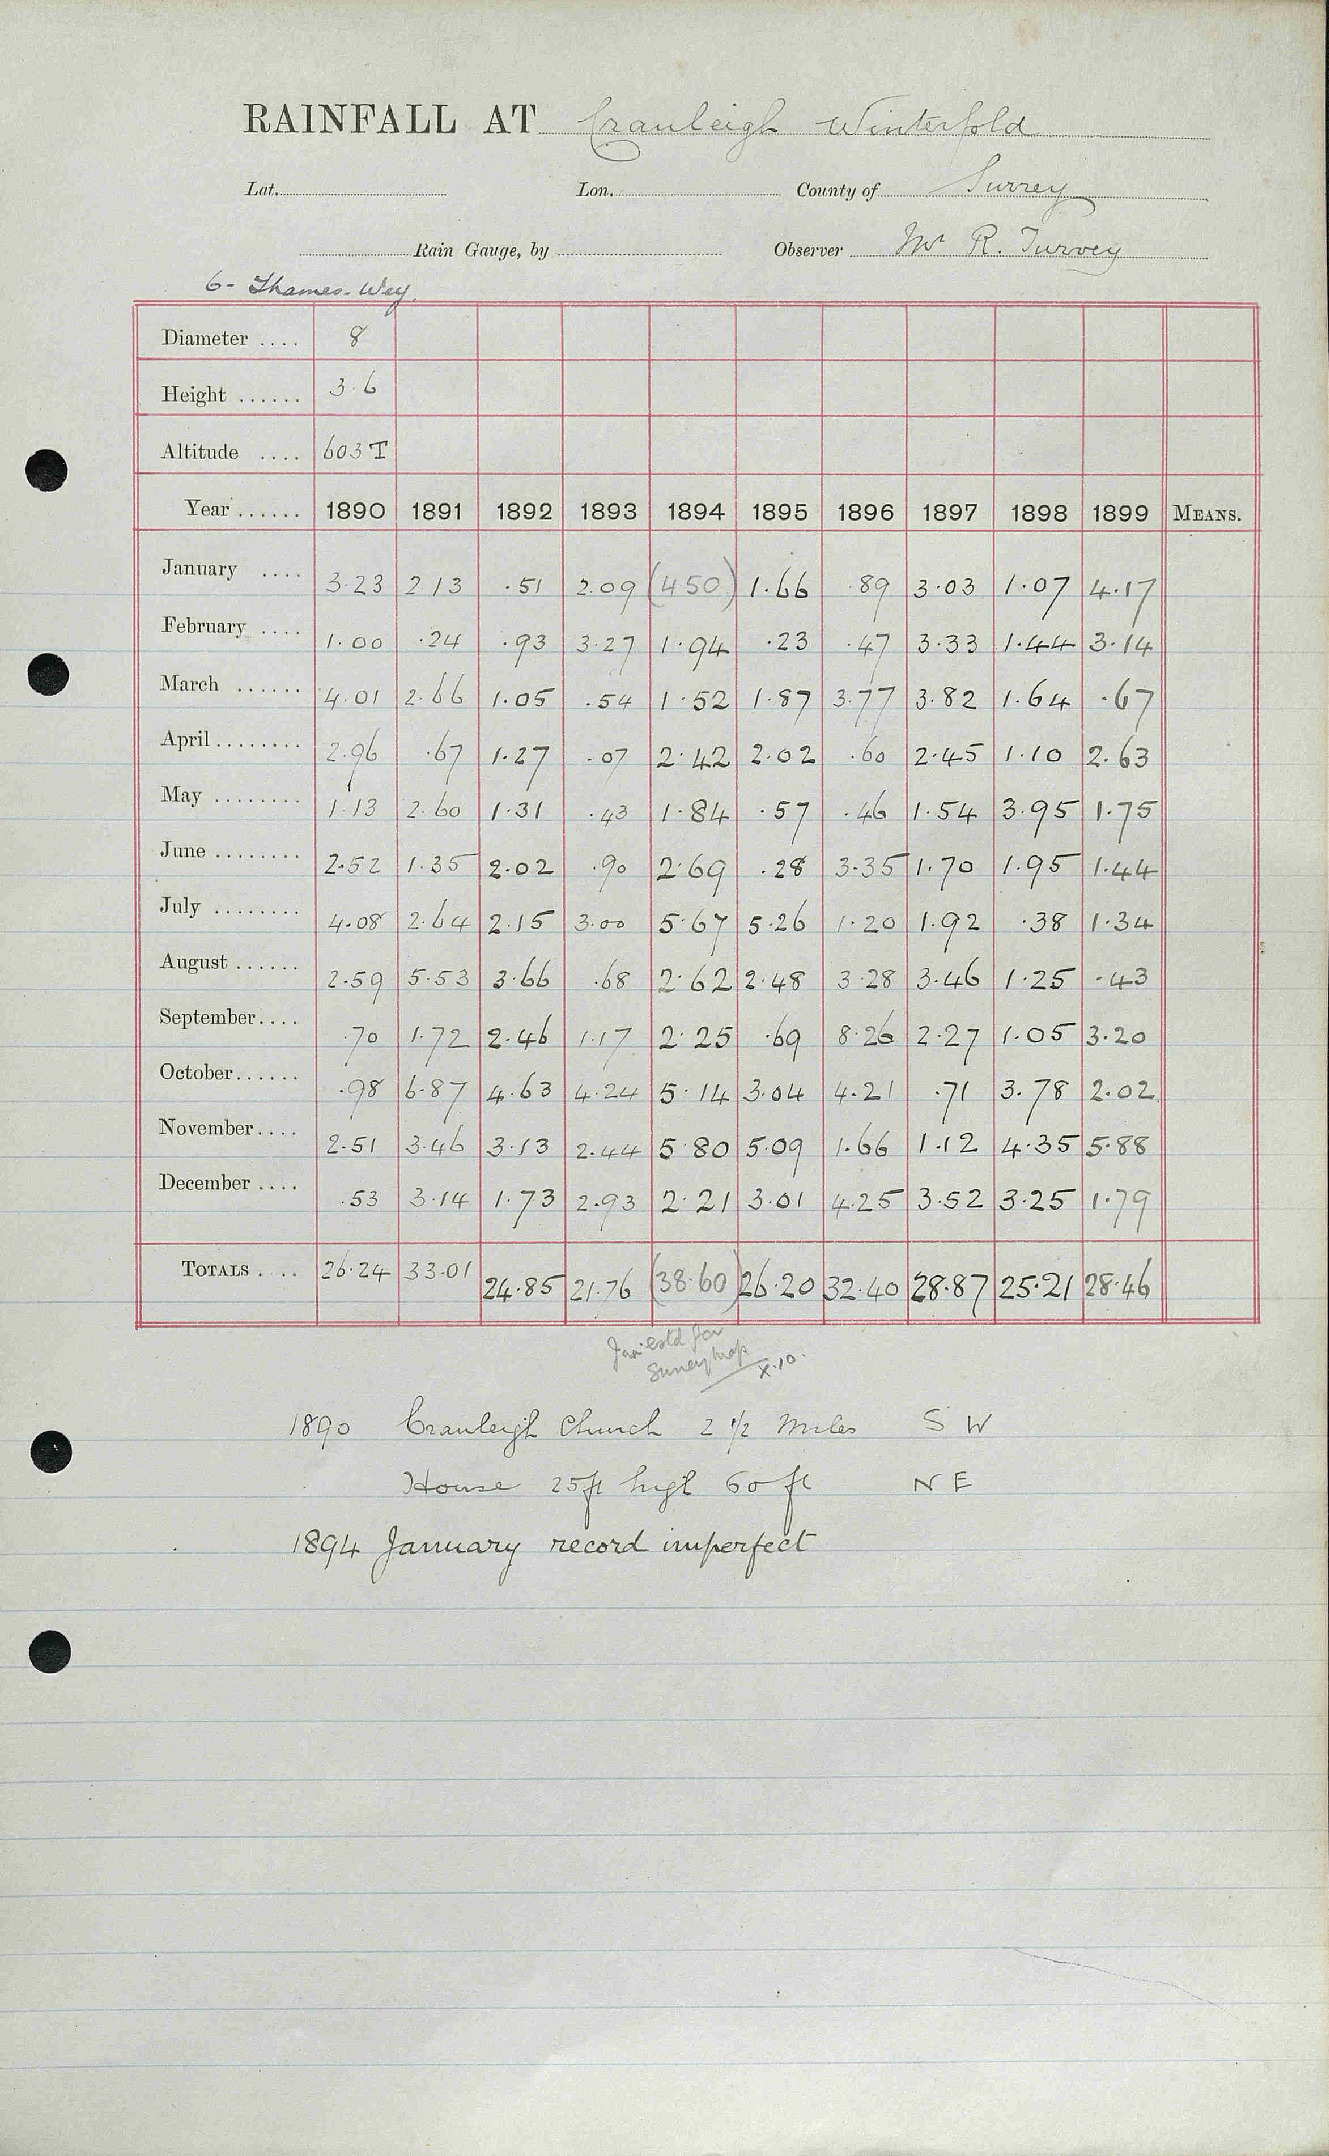 RAINFALL AT Cranleigh Winterfold
Lat. Lon. County of Surrey
Rain Gauge, by Observer Mr R. Turvey
6- Thames-Wey.
Diameter .... 8
Height ...... 3.6
Altitude .... 603 T
Year ...... 1890 1891 1892 1893 1894 1895 1896 1897 1898 1899 MEANS.
January .... 3.23 2.13 .51 2.09 (4.50) 1.66 .89 3.03 1.07 4.17
February .... 1.00 .24 .93 3.27 1.94 .23 .47 3.33 1.44 3.14
March ...... 4.01 2.66 1.05 .54 1.52 1.87 3.77 3.82 1.64 .67
April ........ 2.96 .67 1.27 .07 2.42 2.02 .60 2.45 1.10 2.63
May ........ 1.13 2.60 1.31 .43 1.84 .57 .46 1.54 3.95 1.75
June ........ 2.52 1.35 2.02 .90 2.69 .28 3.35 1.70 1.95 1.44
July ........ 4.08 2.64 2.15 3.00 5.67 5.26 1.20 1.92 .38 1.34
August ...... 2.59 5.53 3.66 .68 2.62 2.48 3.28 3.46 1.25 .43
September .... .70 1.72 2.46 1.17 2.25 .69 8.26 2.27 1.05 3.20
October ...... .98 6.87 4.63 4.24 5.14 3.04 4.21 .71 3.78 2.02
November .... 2.51 3.46 3.13 2.44 5.80 5.09 1.66 1.12 4.35 5.88
December .... .53 3.14 1.73 2.93 2.21 3.01 4.25 3.52 3.25 1.79
TOTALS .... 26.24 33.01 24.85 21.76 (38.60) 26.20 32.40 28.87 25.21 28.46
Jan: estd for
Surrey map X.10.
1890 Cranleigh Church 2 1/2 miles S W
House 25ft high 60 ft N E
1894 January record imperfect